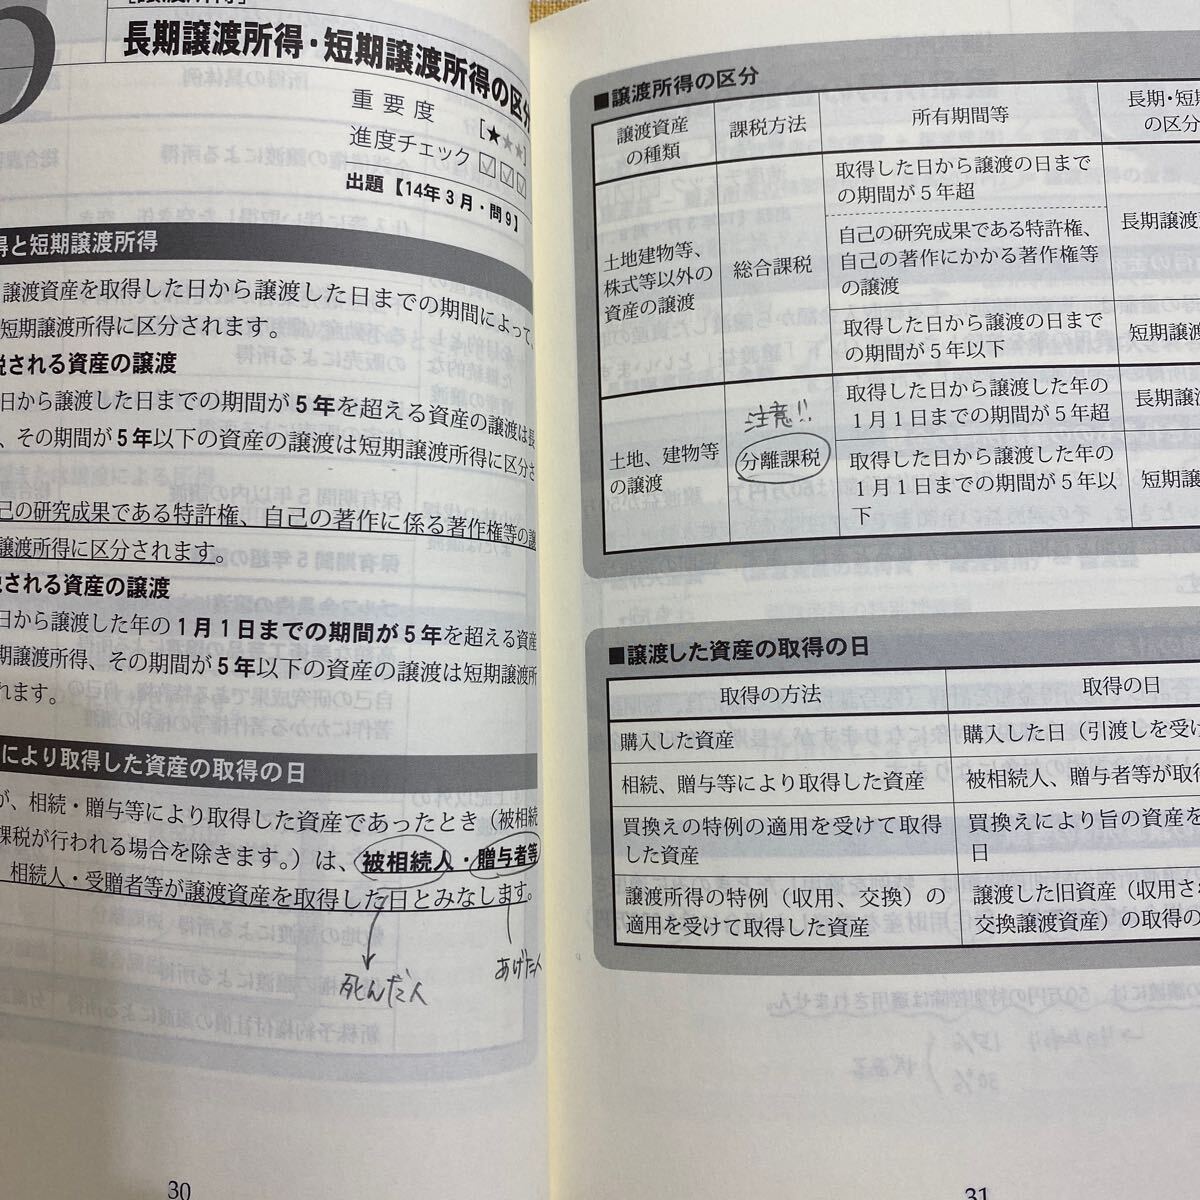 長期譲渡所得・短期譲渡所得の区分
重要度 [★★★]
進度チェック ☑☑☑
出題【14年3月・問9】
得と短期譲渡所得
譲渡資産を取得した日から譲渡した日までの期間によって、
短期譲渡所得に区分されます。
税される資産の譲渡
日から譲渡した日までの期間が5年を超える資産の譲渡は長
、その期間が5年以下の資産の譲渡は短期譲渡所得に区分さ
己の研究成果である特許権、自己の著作に係る著作権等の譲
譲渡所得に区分されます。
税される資産の譲渡
日から譲渡した年の1月1日までの期間が5年を超える資産
期譲渡所得、その期間が5年以下の資産の譲渡は短期譲渡所
れます。
により取得した資産の取得の日
が、相続・贈与等により取得した資産であったとき（被相続
課税が行われる場合を除きます。）は、被相続人・贈与者等
、相続人・受贈者等が譲渡資産を取得した日とみなします。
死んだ人
あげた人
30
■譲渡所得の区分
譲渡資産の種類 課税方法 所有期間等 長期・短
の区分
土地建物等、
株式等以外の
資産の譲渡
総合課税
取得した日から譲渡の日まで
の期間が5年超
自己の研究成果である特許権、
自己の著作にかかる著作権等
の譲渡
長期譲渡
取得した日から譲渡の日まで
の期間が5年以下
短期譲渡
土地、建物等
の譲渡
注意!!
分離課税
取得した日から譲渡した年の
1月1日までの期間が5年超
長期譲
取得した日から譲渡した年の
1月1日までの期間が5年以
下
短期譲
■譲渡した資産の取得の日
取得の方法 取得の日
購入した資産 購入した日（引渡しを受け
相続、贈与等により取得した資産 被相続人、贈与者等が取得
買換えの特例の適用を受けて取得
した資産
買換えにより旨の資産を
日
譲渡所得の特例（収用、交換）の
適用を受けて取得した資産
譲渡した旧資産（収用さ
交換譲渡資産）の取得の
31